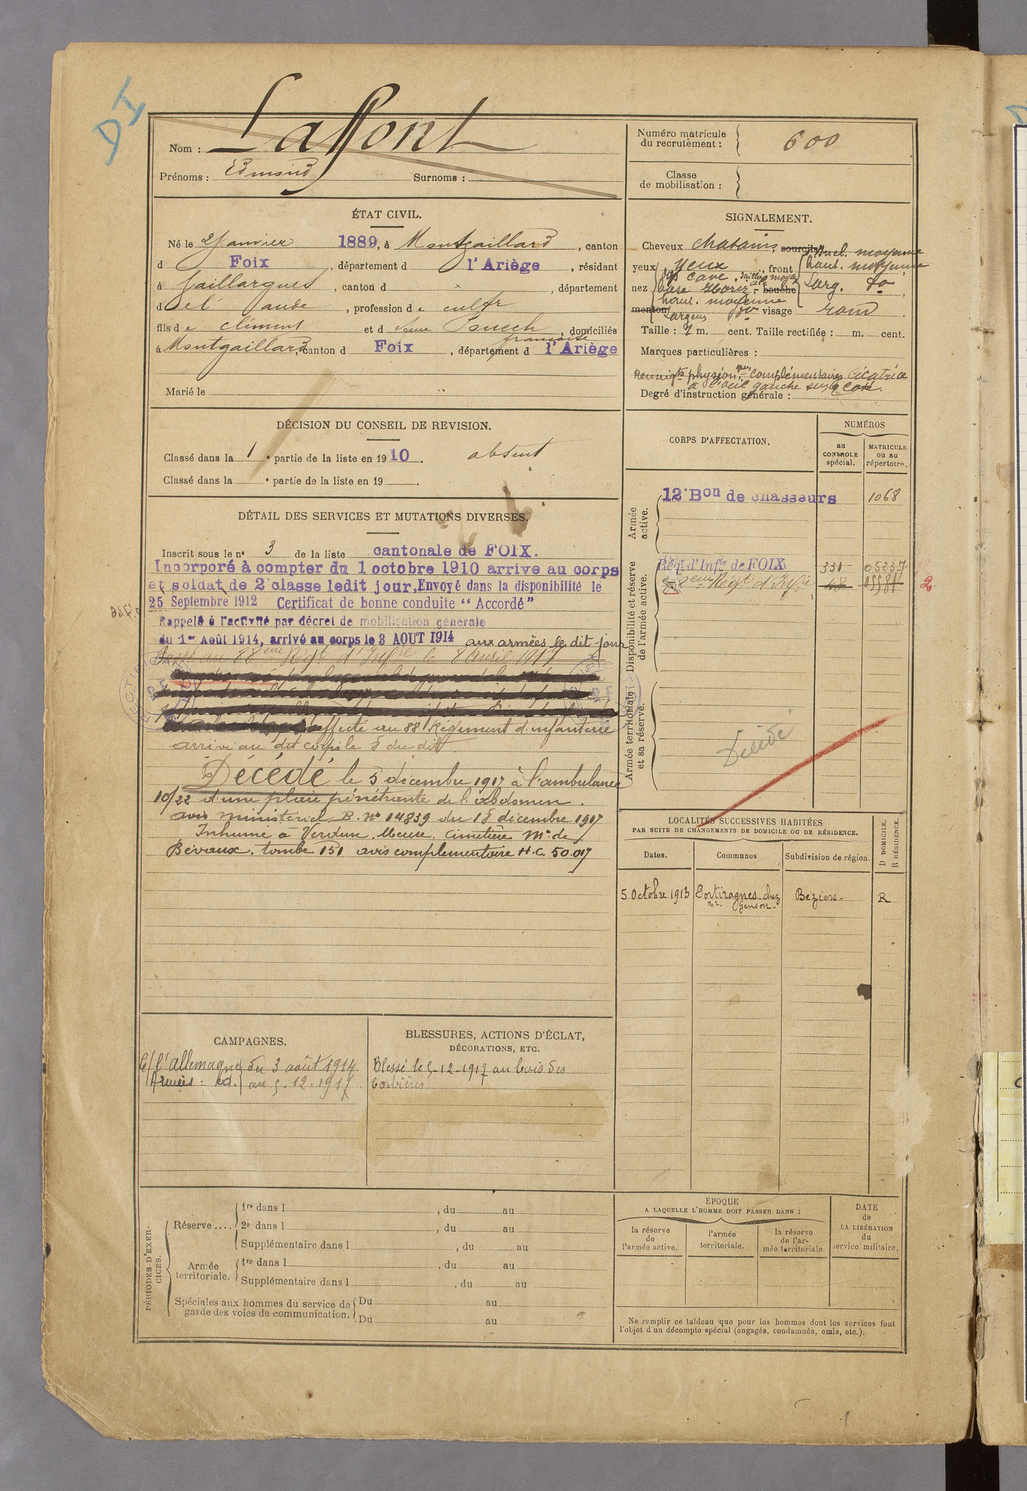 DI
Nom : Laffont
Prénoms : Edmond Surnoms :
Numéro matricule du recrutement : 600
Classe de mobilisation :
ÉTAT CIVIL.
Né le 2 janvier 1889, à Montgaillard, canton
d Foix, département d l'Ariège, résidant
à Gaillargues, canton d , département
d de l'aude, profession de cultr
fils de Clément et d domiciliés
française
à Montgaillard, canton d Foix, département d l'Ariège
Marié le
SIGNALEMENT.
Cheveux chatains, sourcils
yeux , front
nez bouche
menton visage rond
Taille : 1 m. cent. Taille rectifiée : m. cent.
Marques particulières :
Renseigts physion. complémentaires cicatrice
à l'oeil gauche sur le coté.
Degré d'instruction générale :
DÉCISION DU CONSEIL DE REVISION.
Classé dans la 1 e partie de la liste en 1910. absent
Classé dans la e partie de la liste en 19
DÉTAIL DES SERVICES ET MUTATIONS DIVERSES.
Inscrit sous le n° 3 de la liste cantonale de FOIX.
Incorporé à compter du 1 octobre 1910 arrive au corps
et soldat de 2e classe ledit jour, Envoyé dans la disponibilité le
25 Septembre 1912 Certificat de bonne conduite "Accordé"
Rappelé à l'activité par décret de mobilisation générale
du 1er Août 1914, arrivé au corps le 3 AOUT 1914 aux armées le dit jour
Passé au 88eme Régt d'Infrie le 8 avril 1917
affecté au 88e Régiment d'infanterie
arrivé au dit corps le 5 du dit
Décédé le 5 décembre 1917 à l'ambulance
10/22 d'une plaie pénétrante de l'abdomen.
avis ministériel B. N° 14839 du 15 décembre 1917
Inhumé à Verdun, Meuse, cimetière Mre de
Bévaux. tombe 151 avis complementaire H.C. 50.017
CORPS D'AFFECTATION.
NUMÉROS
au CONTROLE spécial.
MATRICULE ou au répertoire.
Armée active.
12e Bon de chasseurs 1068
Disponibilité et réserve de l'armée active.
Régt d'Infie de FOIX 331 05237
2
Armée territoriale et sa réserve.
Décédé
LOCALITÉS SUCCESSIVES HABITÉES
PAR SUITE DE CHANGEMENTS DE DOMICILE OU DE RÉSIDENCE.
Dates. Communes Subdivision de région. D DOMICILE. R RÉSIDENCE.
5 Octobre 1913 Portiragnes chez Beziers R
CAMPAGNES.
C/ l'allemagne du 3 août 1914
au 5.12.1917
BLESSURES, ACTIONS D'ÉCLAT,
DÉCORATIONS, ETC.
Blessé le 5-12-1917 au bois des
Corbières
PÉRIODES D'EXERCICES.
Réserve ....
1re dans l , du au
2e dans l , du au
Supplémentaire dans l , du au
Armée territoriale.
1re dans l , du au
Supplémentaire dans l , du au
Spéciales aux hommes du service de garde des voies de communication.
Du au
Du au
ÉPOQUE
A LAQUELLE L'HOMME DOIT PASSER DANS :
la réserve de l'armée active.
l'armée territoriale.
la réserve de l'armée territoriale.
DATE de LA LIBÉRATION du service militaire.
Ne remplir ce tableau que pour les hommes dont les services font
l'objet d'un décompte spécial (engagés, condamnés, omis, etc.).